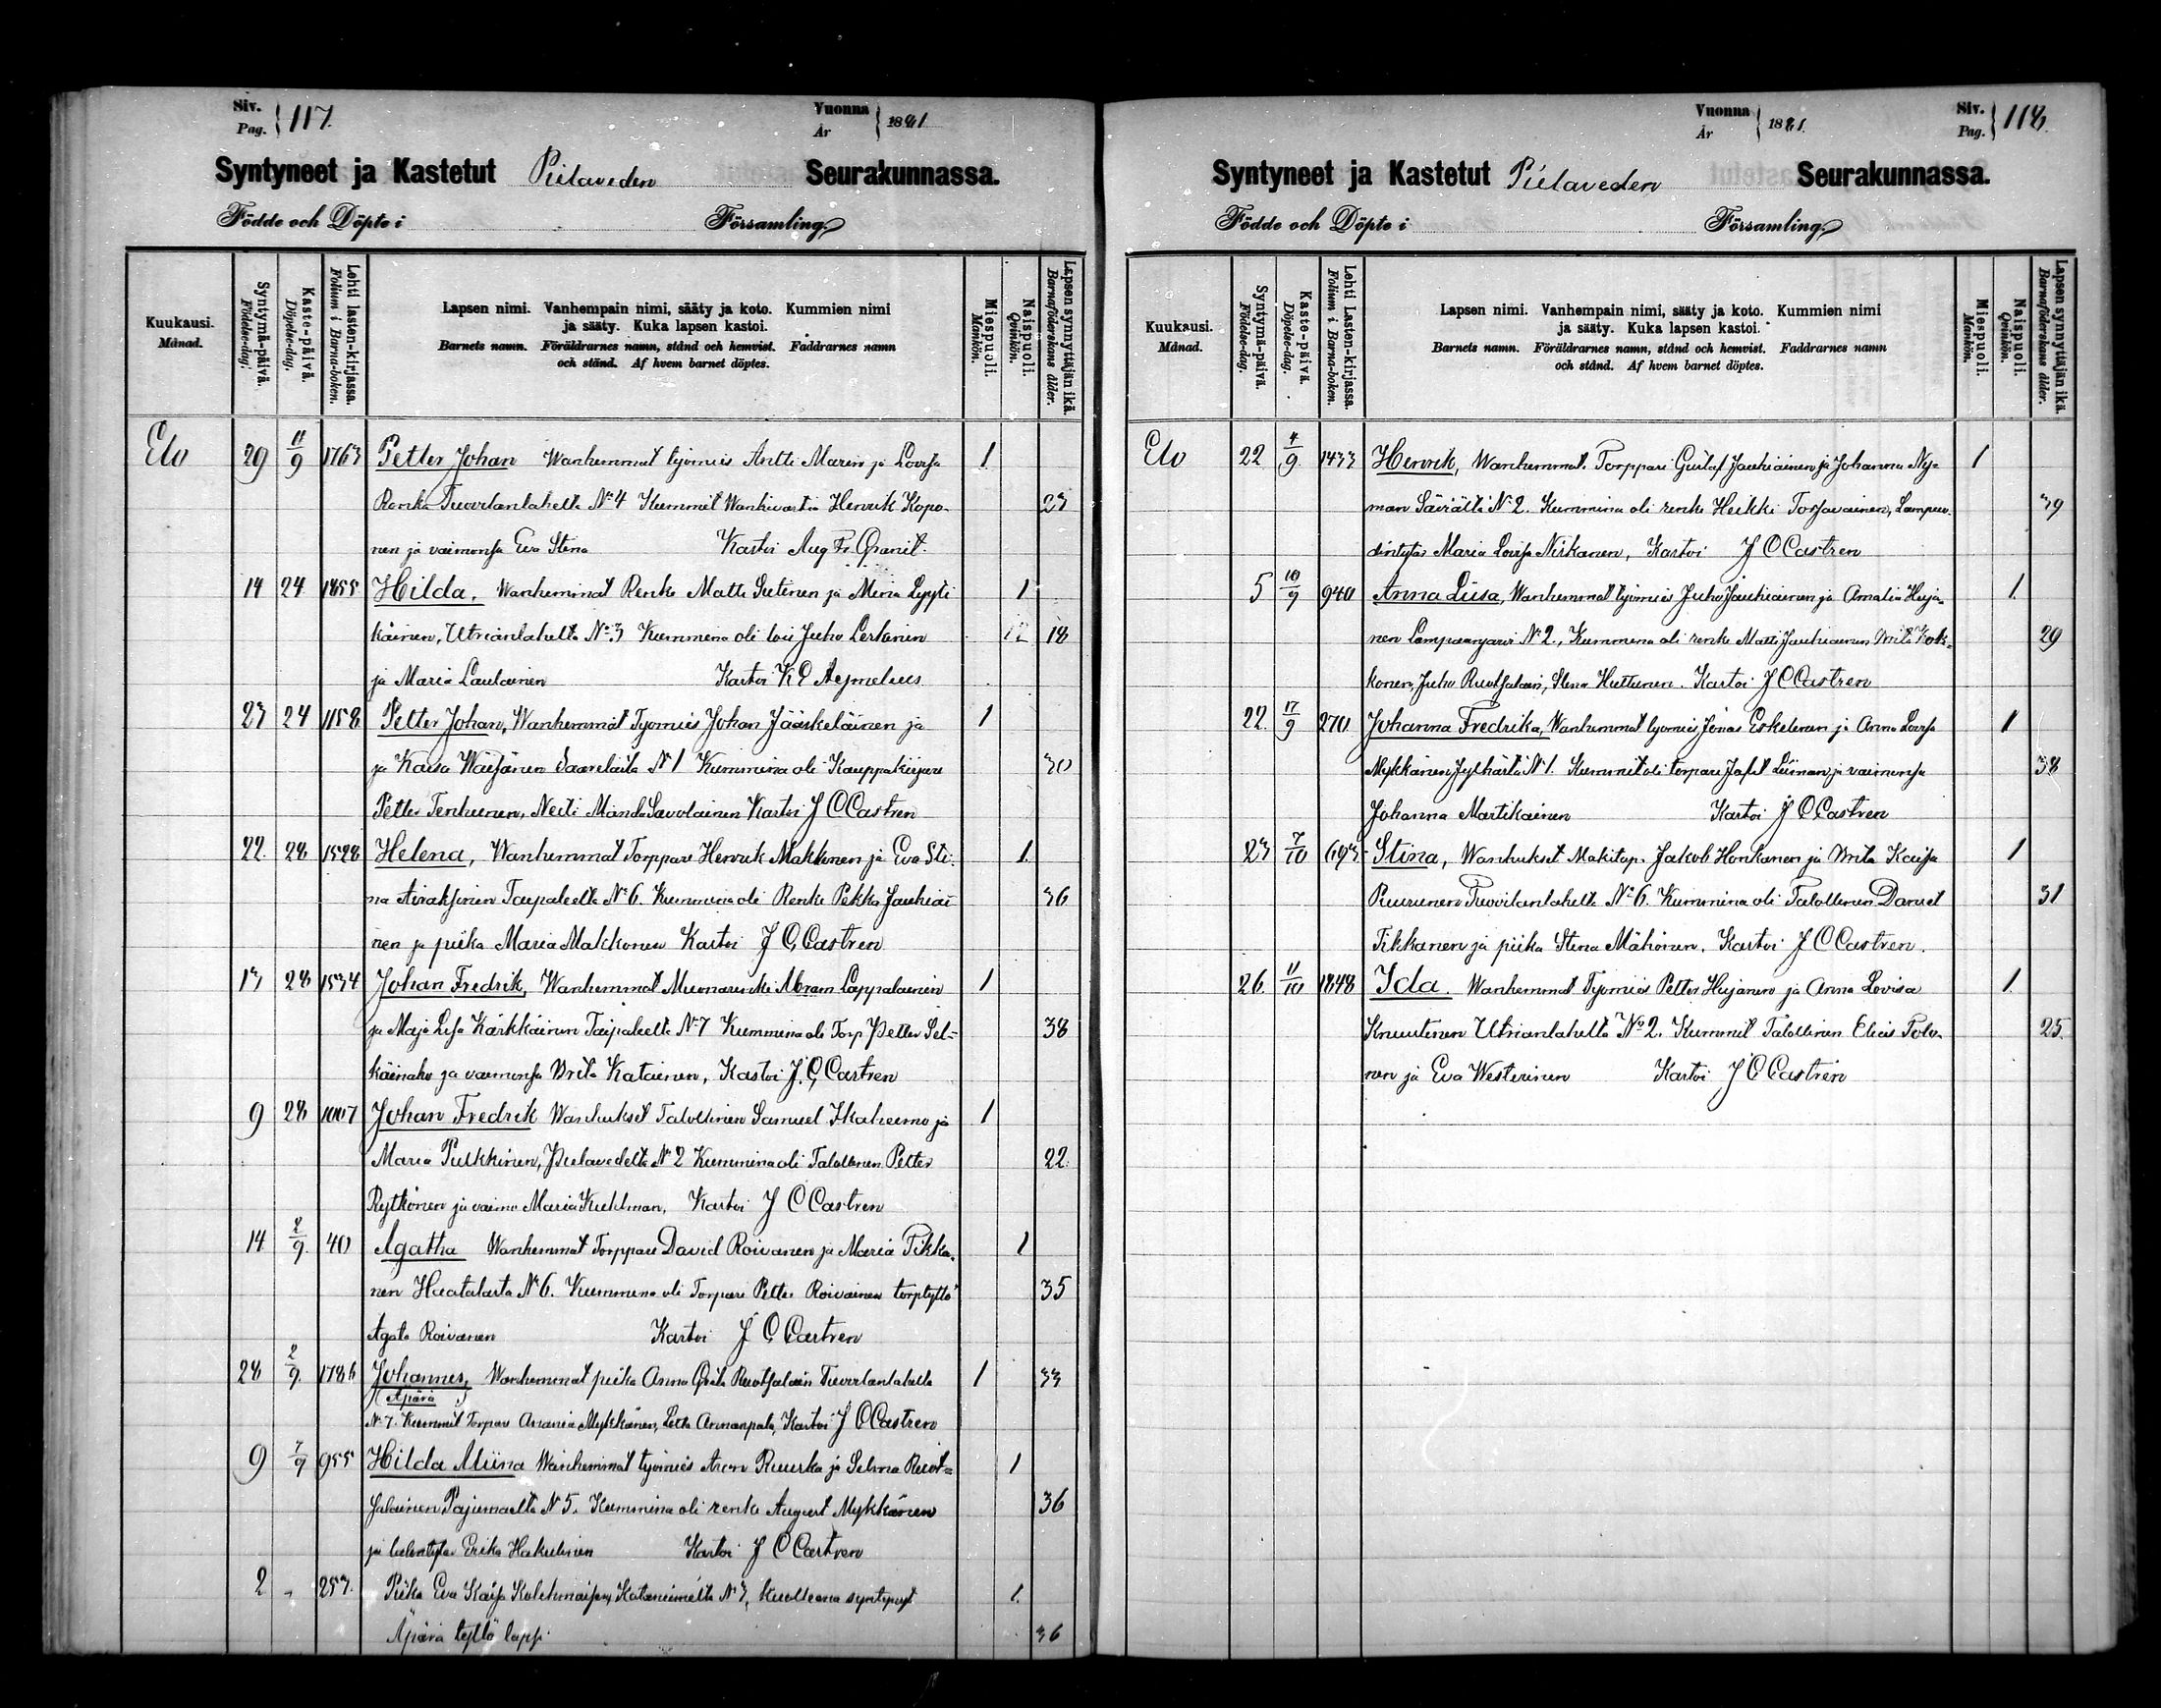 Siv. Pag. 117. Vuonna År 1881
Syntyneet ja Kastetut Pielaveden Seurakunnassa.
Födde och Döpte i Församling
Kuukausi. Månad.
Syntymä-päivä. Födelse-dag.
Kaste-päivä. Döpelse-dag.
Lehti lasten-kirjassa. Folium i Barna-boken.
Lapsen nimi. Vanhempain nimi, sääty ja koto. Kummien nimi
ja sääty. Kuka lapsen kastoi.
Barnets namn. Föräldrarnes namn, stånd och hemvist. Faddrarnes namn
och stånd. Af hvem barnet döptes.
Miespuoli. Mankön.
Naispuoli. Qvinkön.
Lapsen synnyttäjän ikä. Barnaföderskans ålder.
Elo 29 11/9 1763 Petter Johan Wanhemmat työmies Antti Marin ja Lovisa 1
Ronka Tuovilanlahelta No 4 Kummit Wankivartia Henrik Kopo- 23
nen ja vaimonsa Eva Stina Kastoi Aug Fr. Granit.
14 24 1855 Hilda, Wanhemmat Renki Matti Sutinen ja Miina Lyyti 1
käinen, Utrianlahelta No 3 Kummina oli loii Juho Leskinen 18
ja Maria Laulainen Kastoi K E Aejmelæus
23 24 1158 Petter Johan, Wanhemmat Tyomies Johan Jääskeläinen ja 1
ja Kaisa Waisänen Saarelaita No 1 Kummina oli Kauppakirjuri 30
Petter Tenhunen, Neiti Manda Savolainen Kastoi J C Castren
22. 28 1528 Helena, Wanhemmat Torppari Henrik Makkonen ja Eva Sti- 1
na Airaksinen Taipaleelta No 6. Kummina oli Renki Pekka Jauhiai 36
nen ja piika Maria Makkonen Kastoi J C Castren
13 28 1534 Johan Fredrik, Wanhemmat Muonarenki Abram Lappalainen 1
ja Maja Lisa Kärkkäinen Taipaleelta No 7 Kummina oli Torp Petter Sel- 38
käinaho ja vaimonsa Brita Katainen, Kastoi J. C Castren
9 28 1007 Johan Fredrik Wanhukset Talollinen Samuel Ikaheimo ja 1
Maria Pulkkinen, Pielavedelta No 2 Kummina oli Talollinen Petter 22
Rytkönen ja vaimo Maria Kuhlman, Kastoi J C Castren
14 2/9 40 Agatha Wanhemmat Torppari David Roivanen ja Maria Tikka- 1
nen Haatalasta No 6. Kummina oli Torpari Petter Roivainen torptyttö 35
Agata Roivanen Kastoi J C Castren
28 2/9 1786 Johannes, Wanhemmat piika Anna Brita Ruotsalain Tuovilanlahella 1 33
(Äpärä)
No 7. Kummit Torpari Anania Mykkänen, Kastoi J C Castren
9 7/9 955 Hilda Miina Wanhemmat työmies Aron Ruuska ja Selma Ruot- 1
salainen Pajumaelta No 5. Kummina oli renki August Mykkänen 36
ja Erika Hakulinen Kastoi J C Castren
2 „ 257. Piika Eva Kaisa Kolehmaisen, Katanimelta No 3, kuolleena syntynyt 1.
Äpärä tyttö lapsi 36
Siv. Pag. 118. Vuonna År 1881.
Syntyneet ja Kastetut Pielaveden Seurakunnassa.
Födde och Döpte i Församling
Kuukausi. Månad.
Syntymä-päivä. Födelse-dag.
Kaste-päivä. Döpelse-dag.
Lehti Lasten-kirjassa. Folium i Barna-boken.
Lapsen nimi. Vanhempain nimi, sääty ja koto. Kummien nimi
ja sääty. Kuka lapsen kastoi.
Barnets namn. Föräldrarnes namn, stånd och hemvist. Faddrarnes namn
och stånd. Af hvem barnet döptes.
Miespuoli. Mankön.
Naispuoli. Qvinkön.
Lapsen synnyttäjän ikä. Barnaföderskans ålder.
Elo 22 4/9 1433 Henrik, Wanhemmat. Torppari Gustaf Jauhiainen ja Johanna Ny- 1
man Säviältä No 2. Kummina oli renki Heikki Torjavainen, Lampuo- 39
dintytar Maria Lovisa Niskanen, Kastoi J C Castren
5 18/9 940 Anna Liisa, Wanhemmat työmies Juho Jauhiainen ja Amalia Huja- 1.
nen Lampaanjarvi No 2., Kummina oli renki Matti Jauhiainen, Brita Kok- 29
konen, Juho Ruotsalain, Stina Huttunen. Kastoi J C Castren
22. 17/9 270 Johanna Fredrika, Wanhemmat tyomies Jonas Eskelinen ja Anna Lovisa 1
Mykkänen Jylhästä No 1. Kummit oli torpari Jafet Liiman ja vaimonsa 38
Johanna Martikainen Kastoi J C Castren
23 7/10 693 Stina, Wanhukset Makitup. Jakob Honkanen ja Brita Kaisa 1
Puurunen Tuovilanlahelta No 6. Kummina oli Talollinen Daniel 31
Tikkanen ja piika Stina Mähönen. Kastoi J C Castren.
26. 11/10 1848 Ida. Wanhemmat Tyomies Petter Hujanen ja Anna Lovisa 1.
Knuutinen Utrianlahelta No 2. Kummit Talollinen Elias Tolo- 25.
nen ja Eva Westerinen Kastoi J C Castren